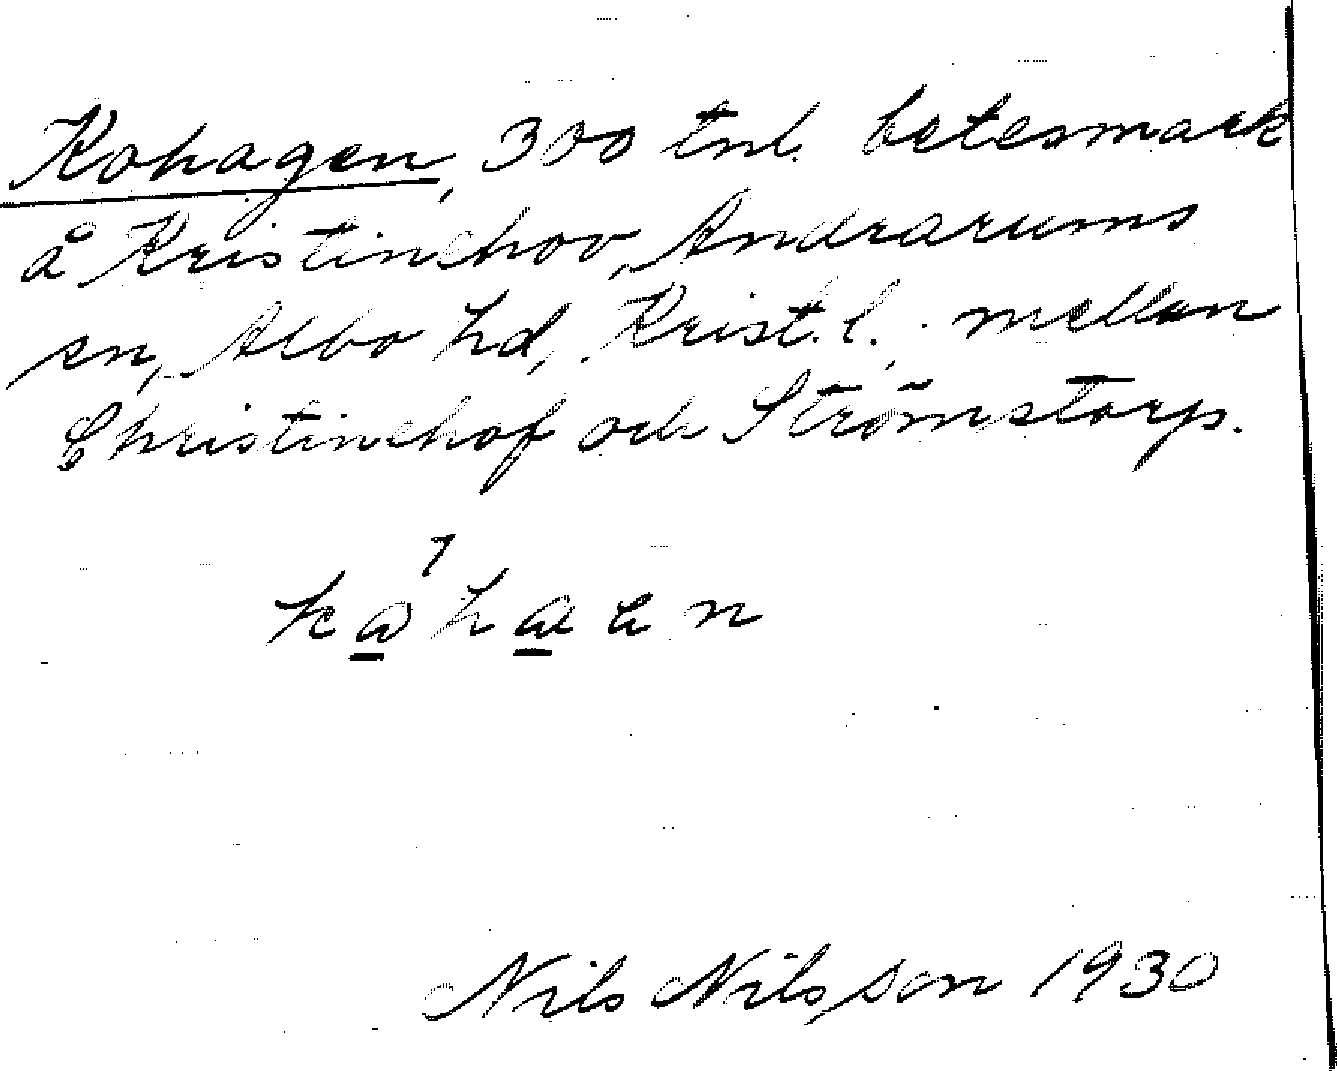 Kohagen, 300 tnl. betesmark
å Kristinehov, Andrarums
sn, Albo hd, Krist. l. mellan
Christinehof och Strömstorp.
Nils Nilsson 1930